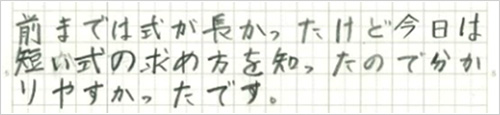 前までは式が長かったけど今日は
短い式の求め方を知ったので分か
りやすかったです。